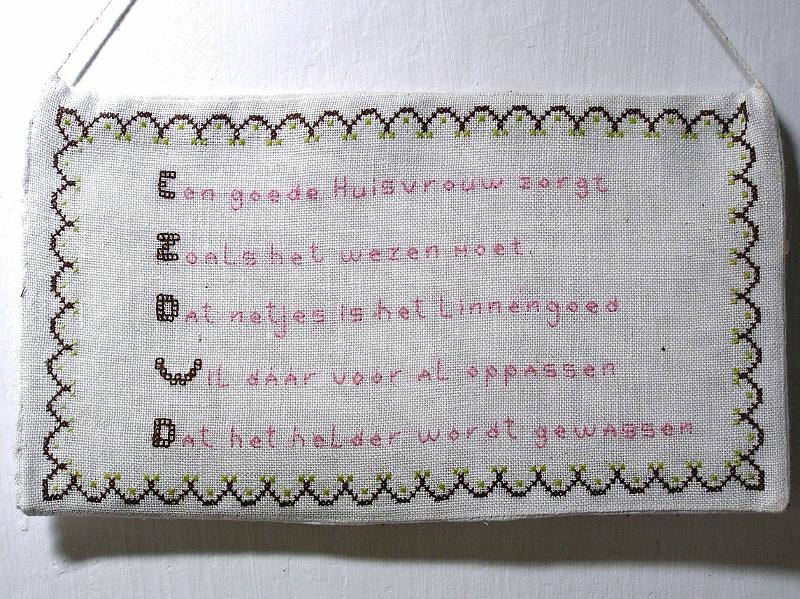 Een goede Huisvrouw zorgt
Zoals het wezen moet.
Dat netjes is het Linnengoed
Wil daar voor al oppassen
Dat het helder wordt gewassen